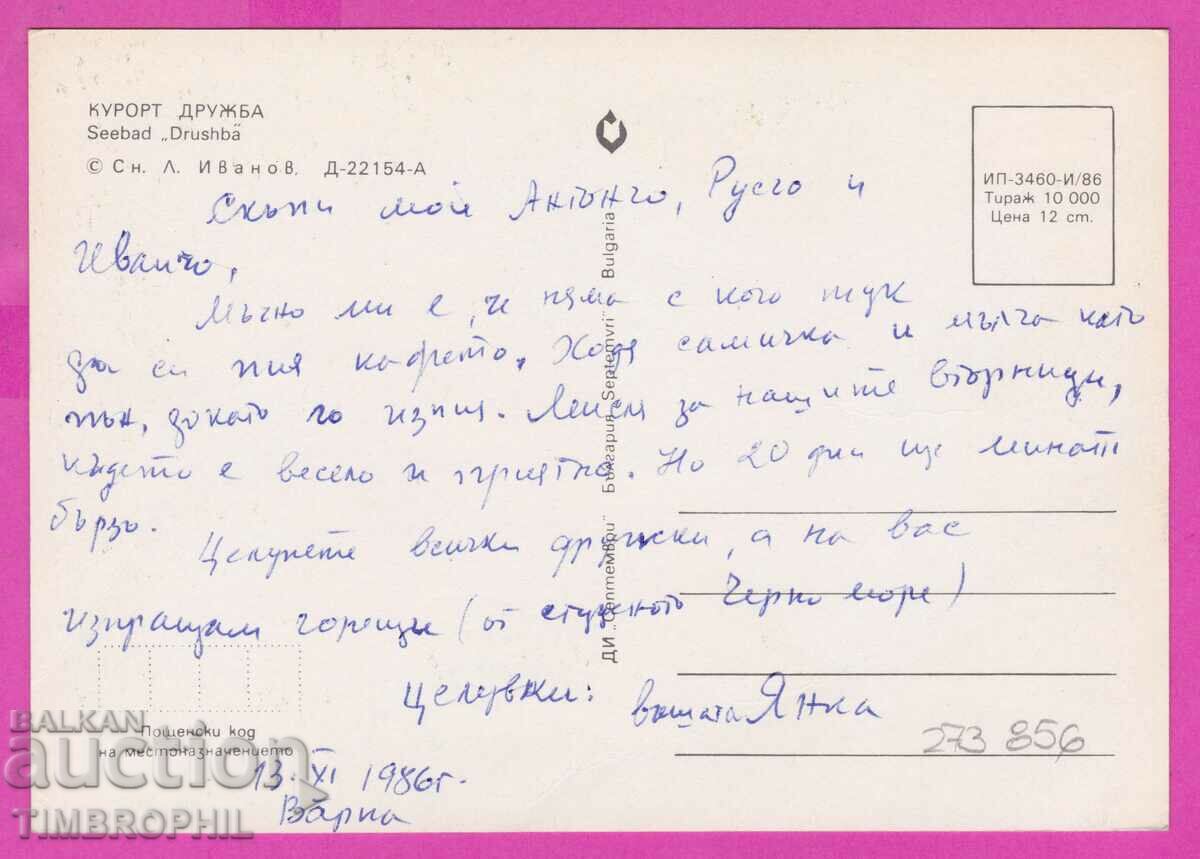 КУРОРТ ДРУЖБА
Seebad „Drushba"
© Сн. Л. Иванов, Д-22154-А
ИП-3460-И/86
Тираж 10 000
Цена 12 ст.
Скъпи мои Антънчо, Русчо и
Иванчо,
Мъчно ми е, че няма с кого тук
да си пия кафето. Ходя самичка и мълча като
пън, докато го изпия. Мисля за нащите вторници,
където е весело и приятно. Но 20 дни ще минат
бързо.
Целунете всички дружки, а на вас
изпращам горещи (от студеното Черно море)
целувки: вашата Янка
13. XI 1986г.
Варна
ДИ „Септември" България „Septemvri" Bulgaria
Пощенски код
на местоназначението
273 856
BALKAN
auction
TIMBROPHIL